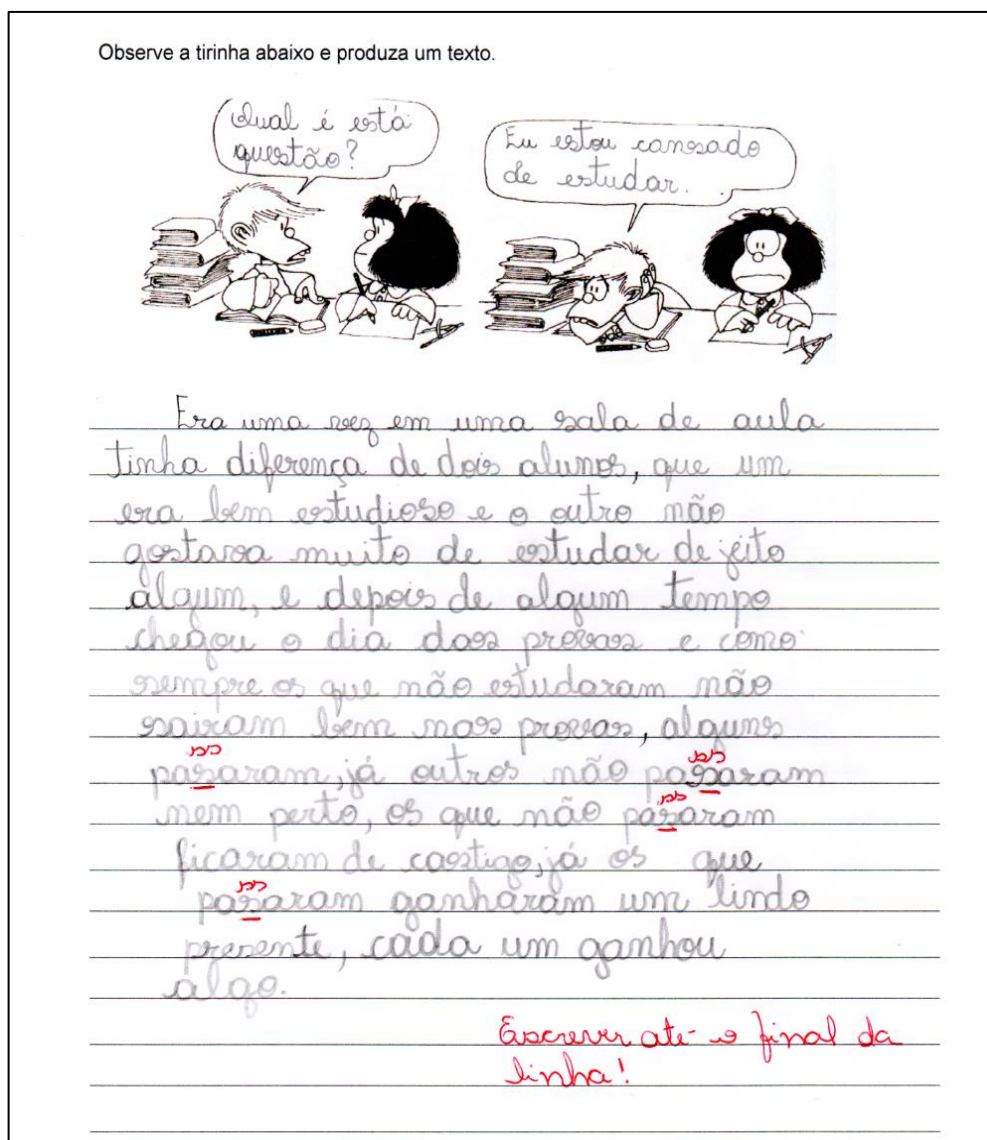 Observe a tirinha abaixo e produza um texto.
Qual é está
questão?
Eu estou cansado
de estudar...
Era uma vez em uma sala de aula
tinha diferença de dois alunos, que um
era bem estudioso e o outro não
gostava muito de estudar de jeito
algum, e depois de algum tempo
chegou o dia das provas e como
sempre os que não estudaram não
sairam bem nas provas, alguns
ss ss
pasaram, já outros não pasaram
ss
nem perto, os que não pasaram
ficaram de castigo, já os que
ss
pasaram ganharam um lindo
presente, cada um ganhou
algo.
Escrever até o final da
linha!